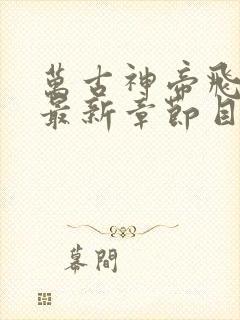 萬古神帝飛
最新章節目
幕間